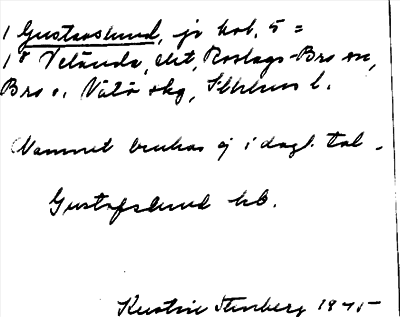 1 Gustavslund, js kob. 5 =
1/8 Veländа, elit, Roslags-Bro sn,
Bro o. Vätö skg, Sthlms l.
Namnet brukas ej i dagl. tal.
Gustafslund kb.
Kerstin Stenberg 1945